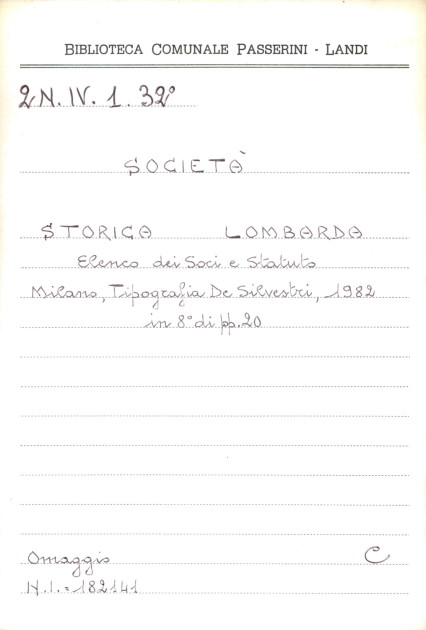 BIBLIOTECA COMUNALE PASSERINI - LANDI
2N.IV.1.32°
SOCIETÀ
STORICA LOMBARDA
Elenco dei Soci e Statuto
Milano, Tipografia De Silvestri, 1982
in 8° di pp. 20
Omaggio C
N.I.=182141